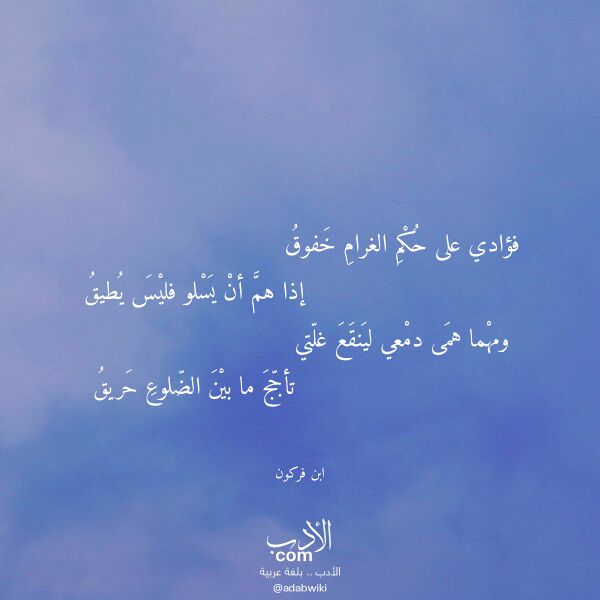 فؤادي على حُكْمِ الغرامِ خَفوقُ
إذا همَّ أنْ يَسْلو فليْسَ يُطيقُ
ومهْما همَى دمْعي ليَنقَعَ غلّتي
تأجّجَ ما بيْنَ الضّلوعِ حَريقُ
ابن فركون
الأدب
com
الأدب .. بلغة عربية
@adabwiki